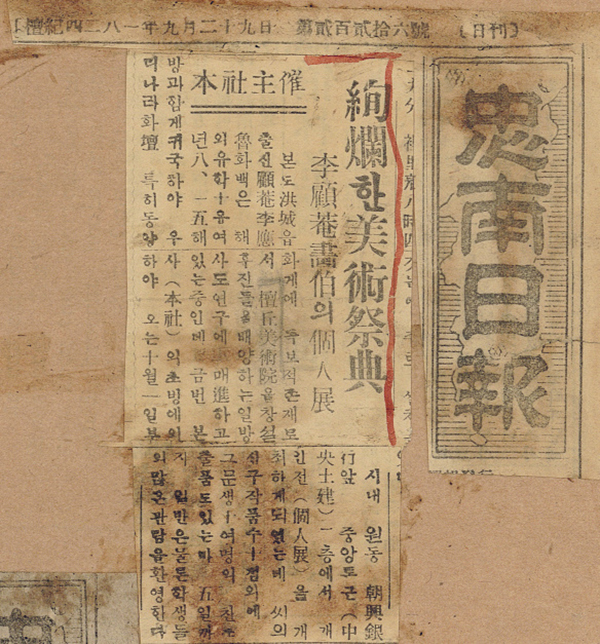 檀紀四二八一年九月二十九日 第貳百貳拾六號 (日刊)
忠南日報
絢爛한美術祭典
李顧菴畵伯의個人展
本社主催
본도洪城읍화게에 독보적존재로
출신顧菴李應서 檀丘美術院을창설
魯화백은 해 후진들을배양하는일방
외유학十용여사도연구에 매進하고
년八、一五해있는중인데 금번 본
방과함게귀국하야 우사(本社)의초빙에의
떠나라화壇 특히동양하야 오는十월一일부
시내 원동 朝興銀
行앞 중앙토근(中
央土建)一층에서 개
인전(個人展)을 개
최하게되엿는데 씨의
신구작품수十점외에
그문생十여명의 찬조
출품도있는바 五일까
지 일반은물론학생들
의많은관람을환영한다